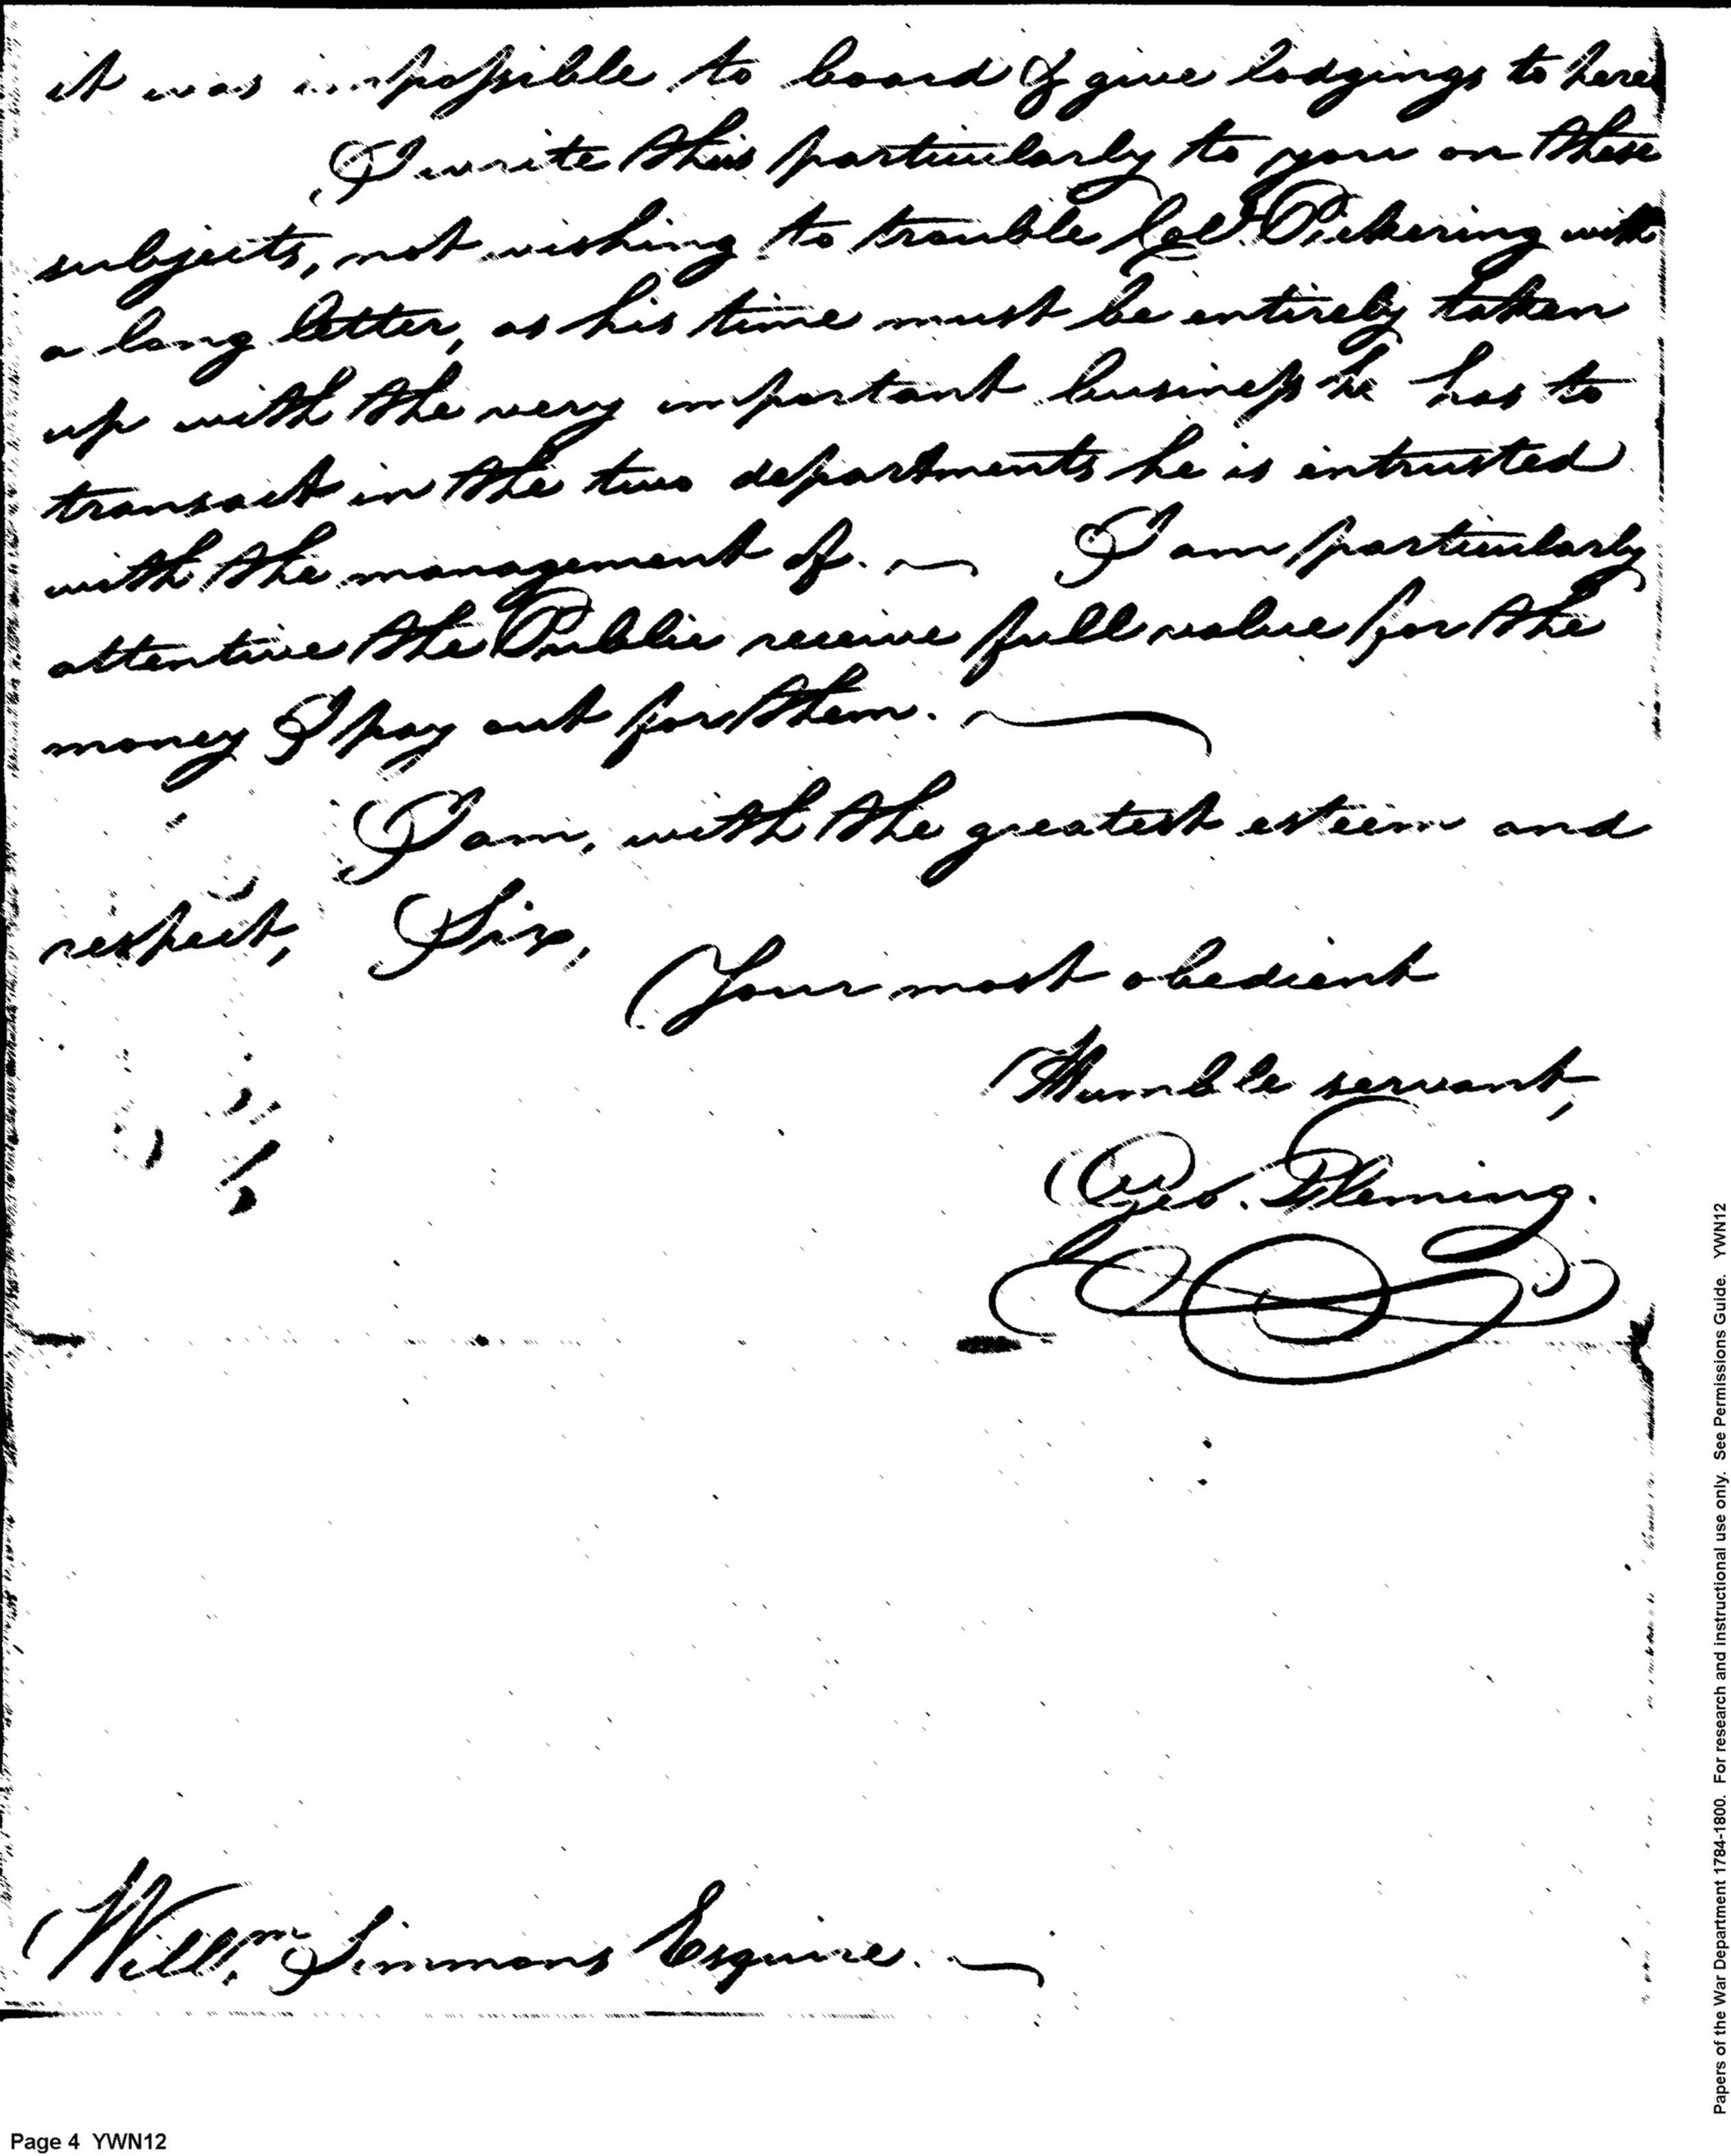 it was impossible to board & give lodgings to here
I write thus particularly to you on these
subjects, not wishing to trouble Col. Pickering with
a long letter, as his time must be entirely taken
up with the very important business he has to
transact in the two departments he is intrusted
with the management of. — I am particularly
attentive the Public receive full value for the
money I pay out for them. —
I am, with the greatest esteem and
respect, Sir,
Your most obedient
Humble servant,
Geo. Fleming.
Willm. Simmons Esquire. —
Papers of the War Department 1784-1800. For research and instructional use only. See Permissions Guide. YWN12
Page 4 YWN12